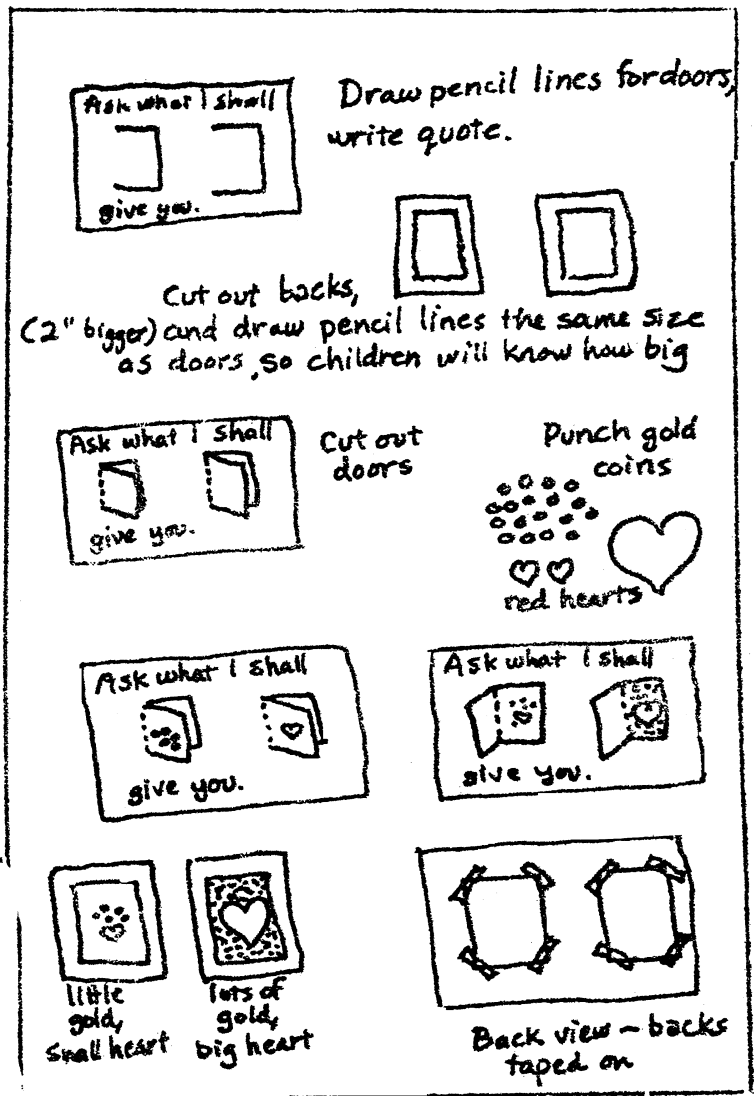 Ask what I shall
give you.
Draw pencil lines for doors,
write quote.
Cut out backs,
(2" bigger) and draw pencil lines the same size
as doors, so children will know how big
Ask what I shall
give you.
Cut out
doors
Punch gold
coins
red hearts
Ask what I shall
give you.
Ask what I shall
give you.
little
gold,
small heart
lots of
gold,
big heart
Back view – backs
taped on